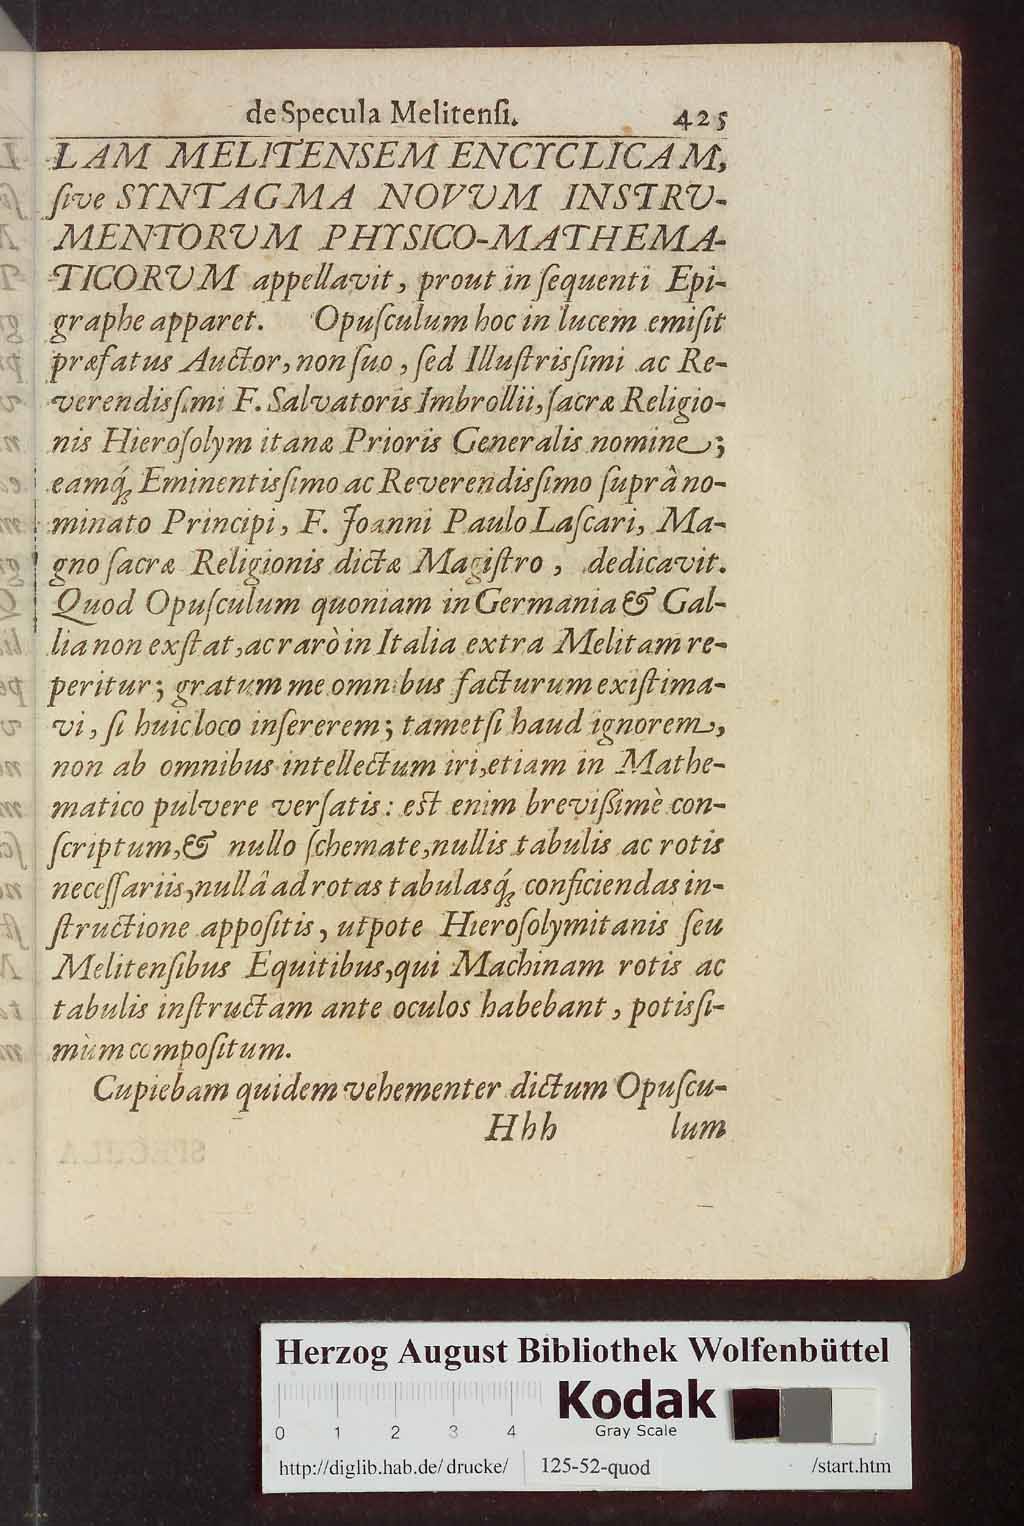 de Specula Melitenſi. 425
LAM MELITENSEM ENCYCLICAM,
ſive SYNTAGMA NOVUM INSTRU-
MENTORUM PHYSICO-MATHEMA-
TICORUM appellavit, prout in ſequenti Epi-
graphe apparet. Opuſculum hoc in lucem emiſit
præfatus Auctor, non ſuo, ſed Illuſtrisſimi ac Re-
verendisſimi F. Salvatoris Imbrollii, ſacræ Religio-
nis Hieroſolymitanæ Prioris Generalis nomine;
eamq́; Eminentisſimo ac Reverendisſimo ſuprà no-
minato Principi, F. Joanni Paulo Laſcari, Ma-
gno ſacræ Religionis dictæ Magiſtro, dedicavit.
Quod Opuſculum quoniam in Germania & Gal-
lia non exſtat, ac rarò in Italia extra Melitam re-
peritur; gratum me omnibus facturum exiſtima-
vi, ſi huic loco inſererem; tametſi haud ignorem,
non ab omnibus intellectum iri, etiam in Mathe-
matico pulvere verſatis: eſt enim breviſſimè con-
ſcriptum, & nullo ſchemate, nullis tabulis ac rotis
neceſſariis, nullâ ad rotas tabulasq́; conficiendas in-
ſtructione appoſitis, utpote Hieroſolymitanis ſeu
Melitenſibus Equitibus, qui Machinam rotis ac
tabulis inſtructam ante oculos habebant, potisſi-
mùm compoſitum.
Cupiebam quidem vehementer dictum Opuſcu-
Hhh lum
Herzog August Bibliothek Wolfenbüttel
Kodak
Gray Scale
0 1 2 3 4
http://diglib.hab.de/drucke/ 125-52-quod /start.htm